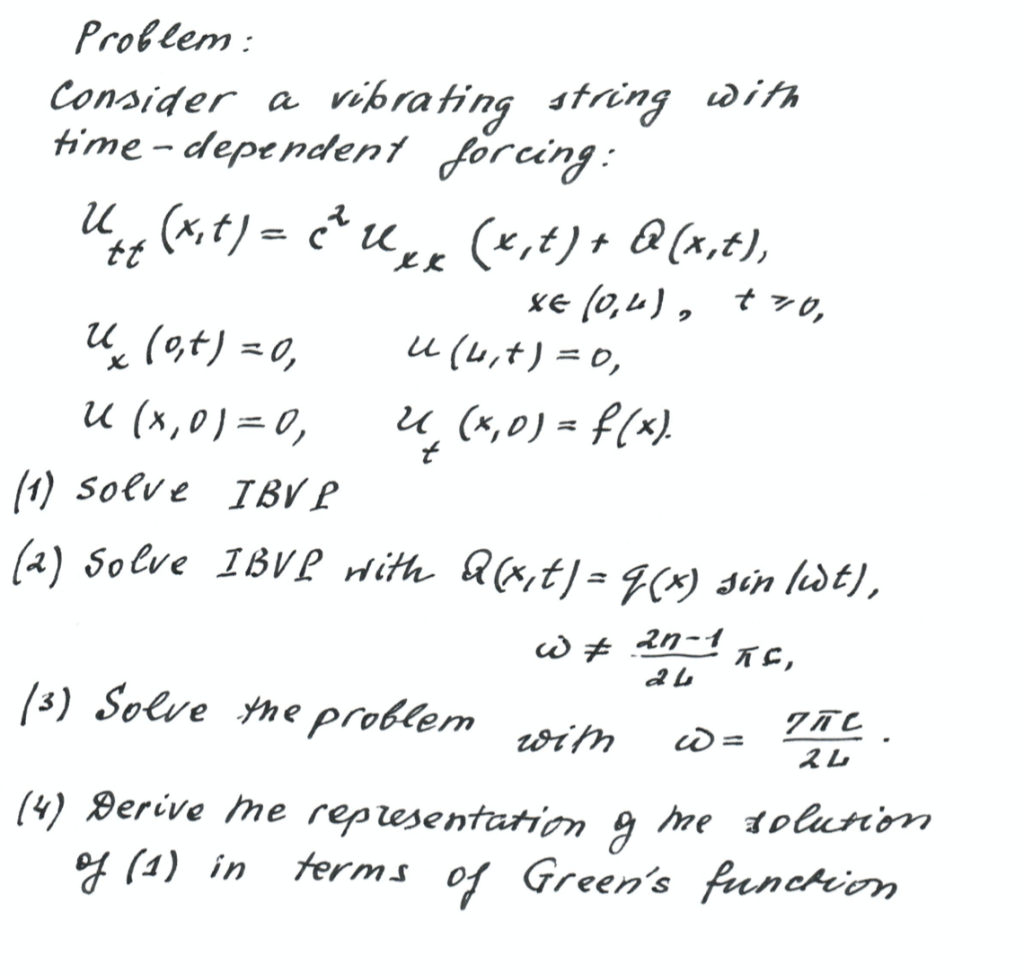 Problem:
Consider a vibrating string with
time-dependent forcing:
u_tt (x,t) = c² u_xx (x,t) + Q(x,t),
x∈(0,L), t ≥ 0,
u_x (0,t) = 0, u(L,t) = 0,
u (x,0) = 0, u_t (x,0) = f(x).
(1) Solve IBVP
(2) Solve IBVP with Q(x,t) = q(x) sin(ωt),
ω ≠ (2n-1)/(2L) πc,
(3) Solve the problem with ω = 7πc/(2L).
(4) Derive the representation of the solution
of (1) in terms of Green's function